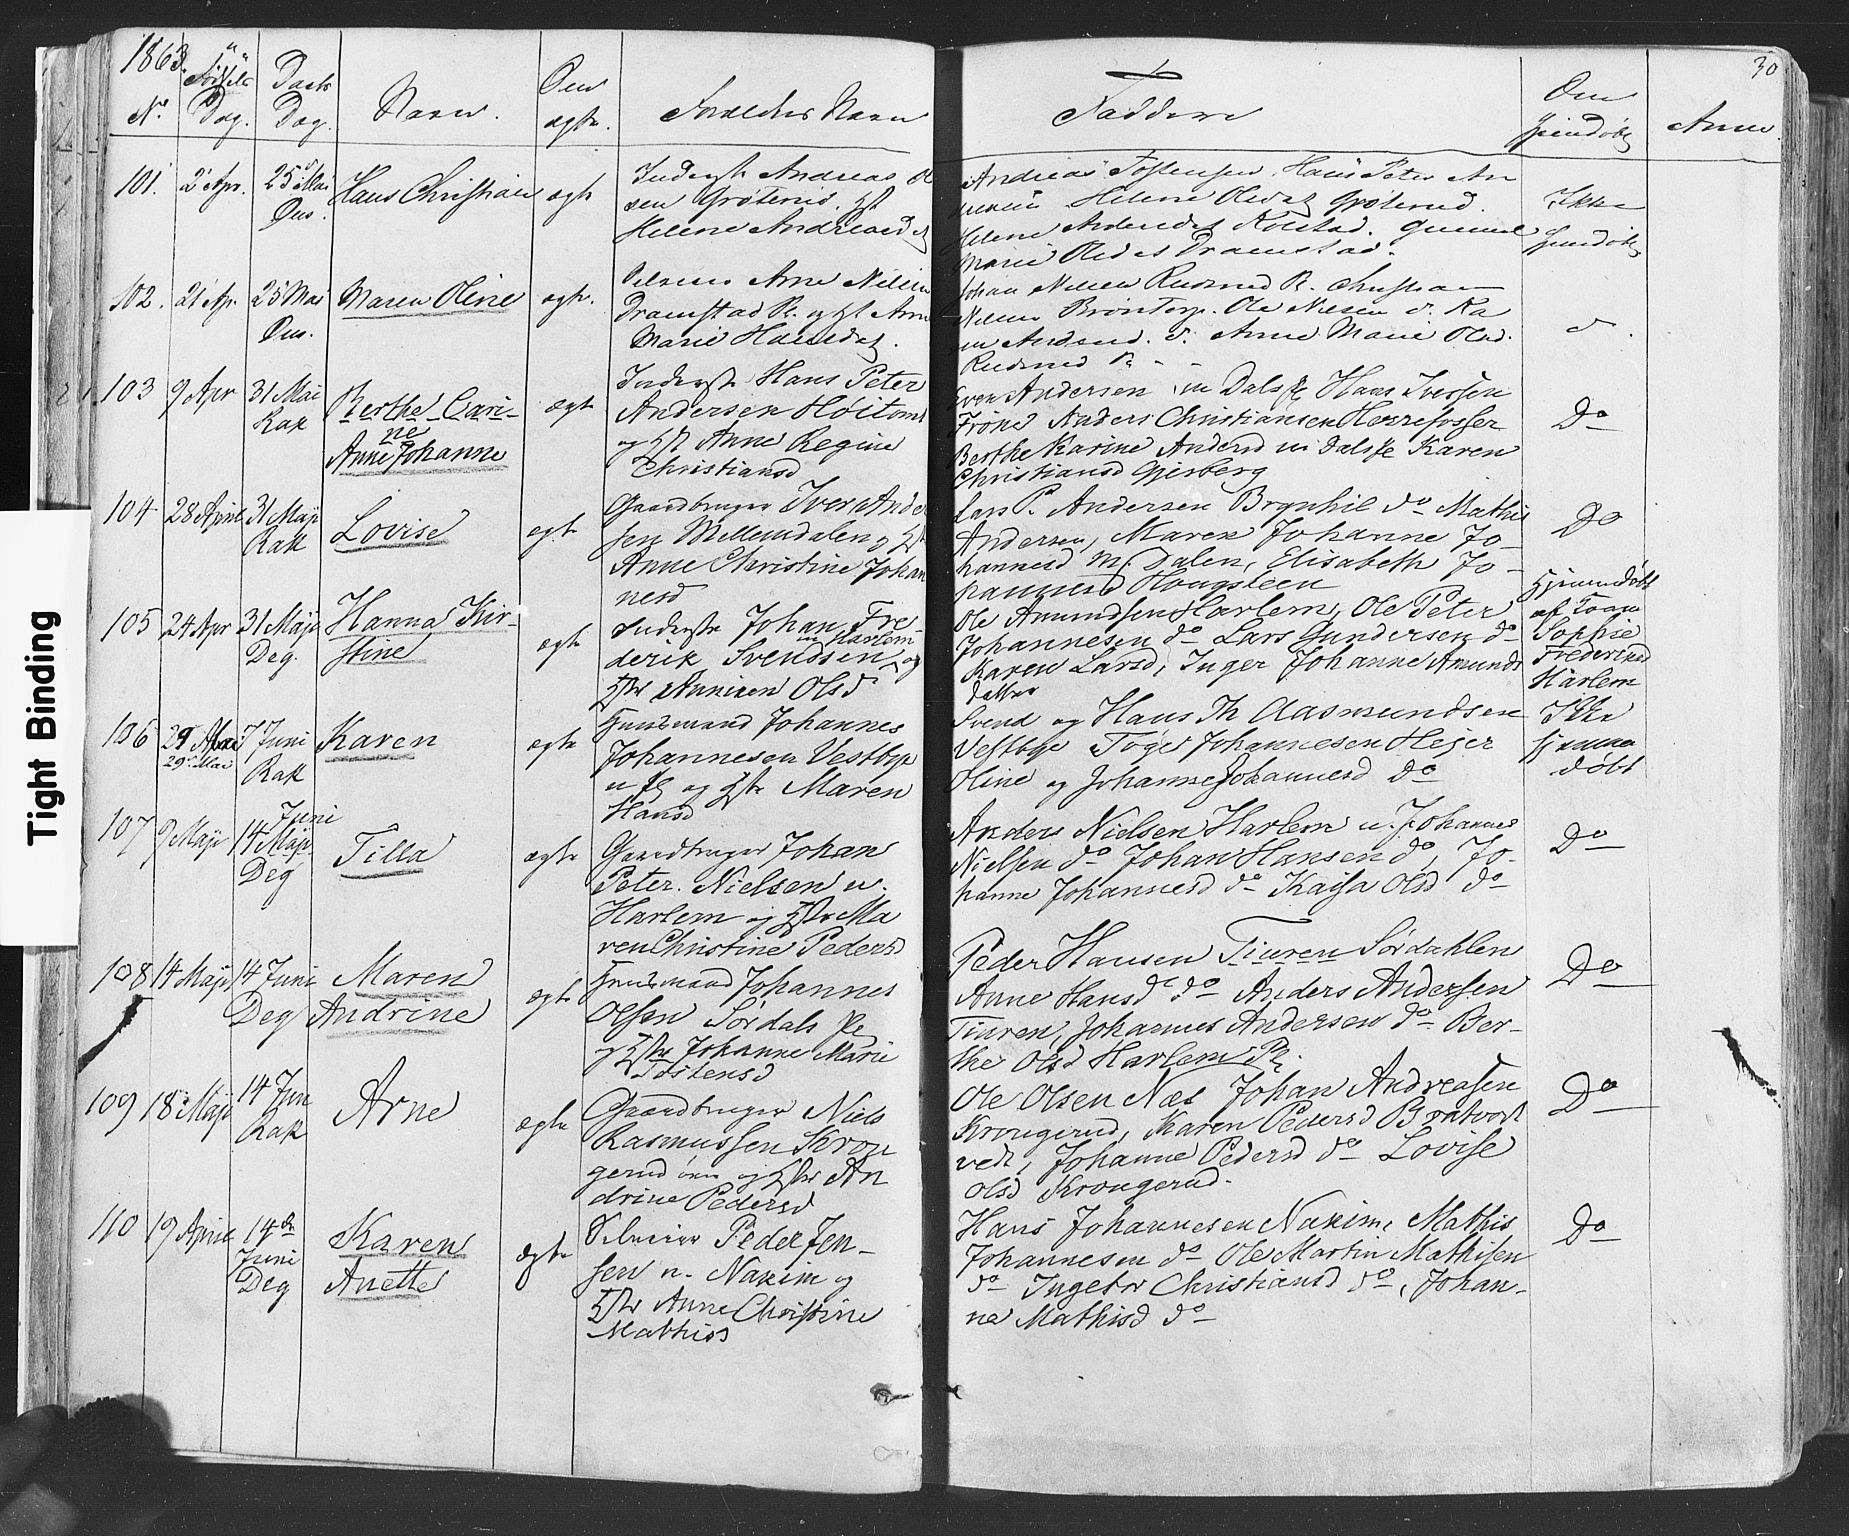 1863.
30
No.
Fødsels Dag.
Daabs Dag.
Navn.
Om ægte.
Forældres Navn
Faddere
Om hjemdøbt
Anm.
101.
2 Apr.
25 Mai
Øus.
Hans Christian
ægte
Inderst Andreas Ol
sen Grøterud. Hst
Helene Andreasd
Andreas Tostensen Hans Peter An
Helene Olsdt Grøterud.
Helene Andersdt Kolstad. Gunnil
Marie Olsdt Dramstad.
Ikke
hjemdøbt
102.
21 Apr.
25 Mai
Øus.
Maren Oline
ægte.
Arne Nilsen
Dramstad Pl. og Hst Anne
Marie Hansdt.
Johan Nilsen Rudsrud Pl. Christian
Nilsen Brøntorp. Ole Nilsen d. Ka
ren Andsd. d. Anne Marie Olsd.
Rudsrud Pl
d.
103
9 Apr
31 Mai
Rak
Berthe Cari-
ne
Anne Johanne
ægte
Inderste Hans Peter
Andersen Høitoms
og Hst Anne Regine
Christiansd
Even Andersen m Dals Hans Iversen
Frøne Anders Christiansen Herrefosser
Berthe Karine Andersd m Dals Karen
Christiansd Gjerberg
Do
104
28 April
31 Maji
Rak
Lovise
ægte
Gaardbruger Iver Ander
sen Mellemdalen og Hst
Anne Christine Johan
nesd
Lars P. Andersen Brynhil do Mathis
Andersen, Maren Johanne Jo-
hannesd M. Dalen, Elisabeth Jo-
hannesd Hougsteen
Do
105
24 Apr
31 Maji
Deg.
Hanna Kir-
stine
ægte
Inderste Johan Fre-
m Harlem
derik Svendsen og
Hstr Anniken Olsd
Ole Amundsen Harlem, Ole Peter
Johannesen do Lars Gundersen do
Karen Larsd, Inger Johanne Amunds
datter
Hjemmedøbt
af
Sophie
Frederiksd
Harlem
106
29 April
29 Mai
7 Juni
Rak
Karen
ægte
Huusmand Johannes
Johannesen Vestbye
og Hstr Maren
Hansd
Svend og Hans Th Aasmundsen
Vestbye Tøger Johannesen Hejer
Oline og Johanne Johannesd do
Ikke
hjemme
døbt
107
9 Maji
Juni
14 Maji
Deg
Tilla
ægte
Gaardbruger Johan
Peter Nielsen u.
Harlem og Hstr Ma
ren Christine Pedersd
Anders Nielsen Harlem u, Johannes
Nielsen do Johan Hansen do, Jo-
hanne Johannesd do Kaisa Olsd do
Do
108
14 Maji
14 Juni
Deg
Maren
Andrine
ægte
Huusmand Johannes
Olsen Sørdals
og Hstr Johanne Marie
Tostensd
Peder Hansen Tiuren Sørdahlen
Anne Hansd do Anders Andersen
Tiuren, Johannes Andersen do Ber-
the Olsd Harlem Pl.
Do
109
18 Maji
14 Juni
Rak
Arne
ægte
Gaardbruger Niels
Rasmussen Kron
gerud og Hstr An
drine Pedersd
Ole Olsen Næs Johan Andreasen
Krongerud, Maren Pedersd Bratvost
vedt, Johanne Pedersd do Lovise
Olsd Krongerud.
Do
110
19 April
14de
Juni
Deg
Karen
Anette
ægte
Selveier Peder Jen-
sen n. Nakim og
Hstr Anne Christine
Mathisd
Hans Johannesen Nakim, Mathis
Johannesen do Ole Martin Mathisen
do Ingebor Christiansd do, Johan-
ne Mathisd do
Do
Tight Binding